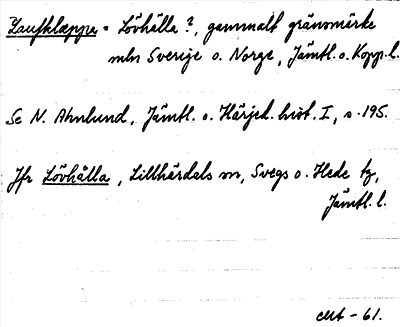 Laufklæppa = Lövhälla?, gammalt gränsmärke
mln Sverige o. Norge, Jämtl. o. Kopp. l.
Se N. Ahnlund, Jämtl. o. Härjed. hist. I, s. 195.
Jfr Lövhälla, Lillhärdals sn, Svegs o. Hede tg,
Jämtl. l.
-61.